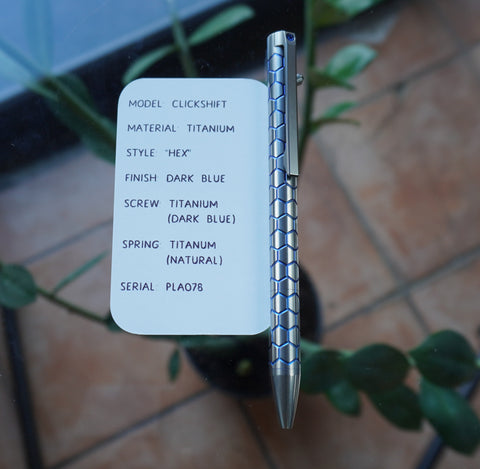 MODEL: CLICKSHIFT
MATERIAL: TITANIUM
STYLE: "HEX"
FINISH: DARK BLUE
SCREW: TITANIUM
(DARK BLUE)
SPRING: TITANUM
(NATURAL)
SERIAL: PLA078